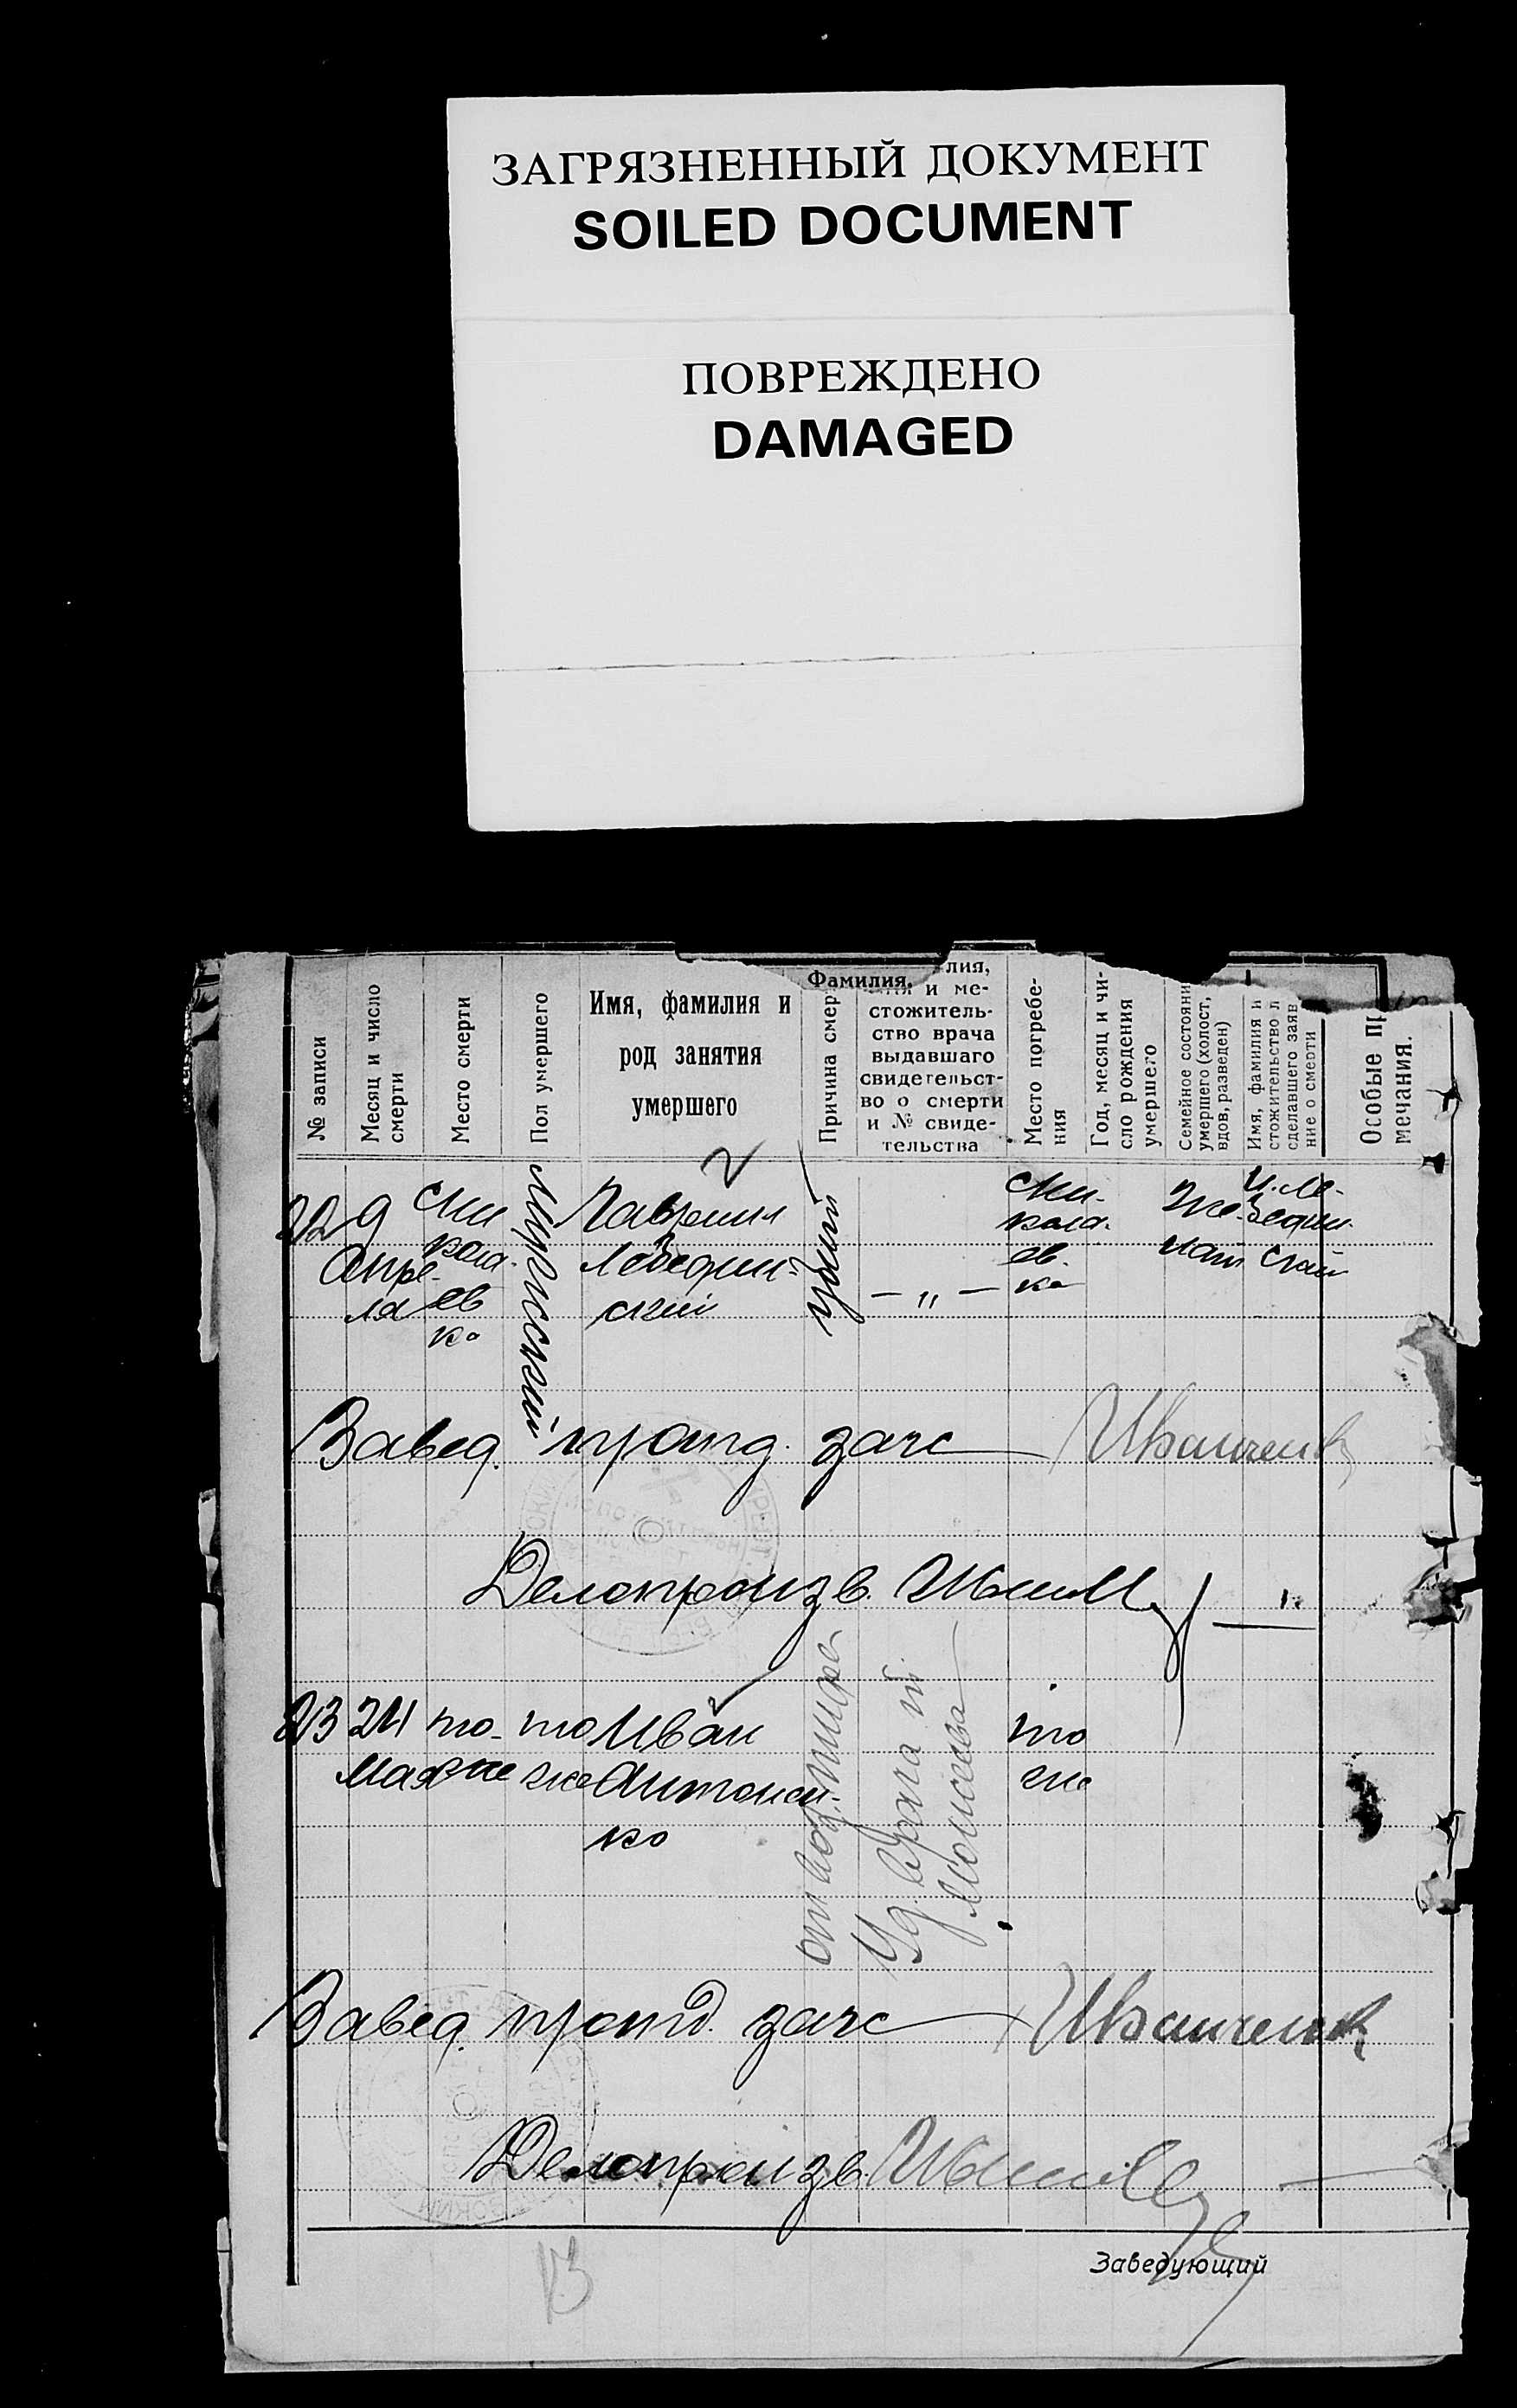 ЗАГРЯЗНЕННЫЙ ДОКУМЕНТ
SOILED DOCUMENT
ПОВРЕЖДЕНО
DAMAGED
№ записи
Месяц и число
смерти
Место смерти
Пол умершего
Имя, фамилия и
род занятия
умершего
Причина смер
Фамилия,
лия,
и ме-
стожитель-
ство врача
выдавшаго
свидетельст-
во о смерти
и № свиде-
тельства
Место погребе-
ния
Год, месяц и чи-
сло рождения
умершего
Семейное состояни
умершего (холост,
вдов, разведен)
Имя, фамилия и
стожительство л
сделавшего заяв
ние о смерти
Особые пр
мечания.
22
9
Апре-
ля
Ни
кола-
ев
ка
мужеский
Гавриил
Лебедин-
ский
убит
— „ —
Ни-
кола-
ев-
ка
Же-
нат
И. Ле-
бедин-
ский
Завед. протд. загс Иванченк
Делопроизв.
23
24
Мая
то-
же
то
же
Иван
Антонен-
ко
от
Уд. врача
Моисеева
то
же
Завед. протд. загс Иванченк
Делопроизв.
Заведующий
13